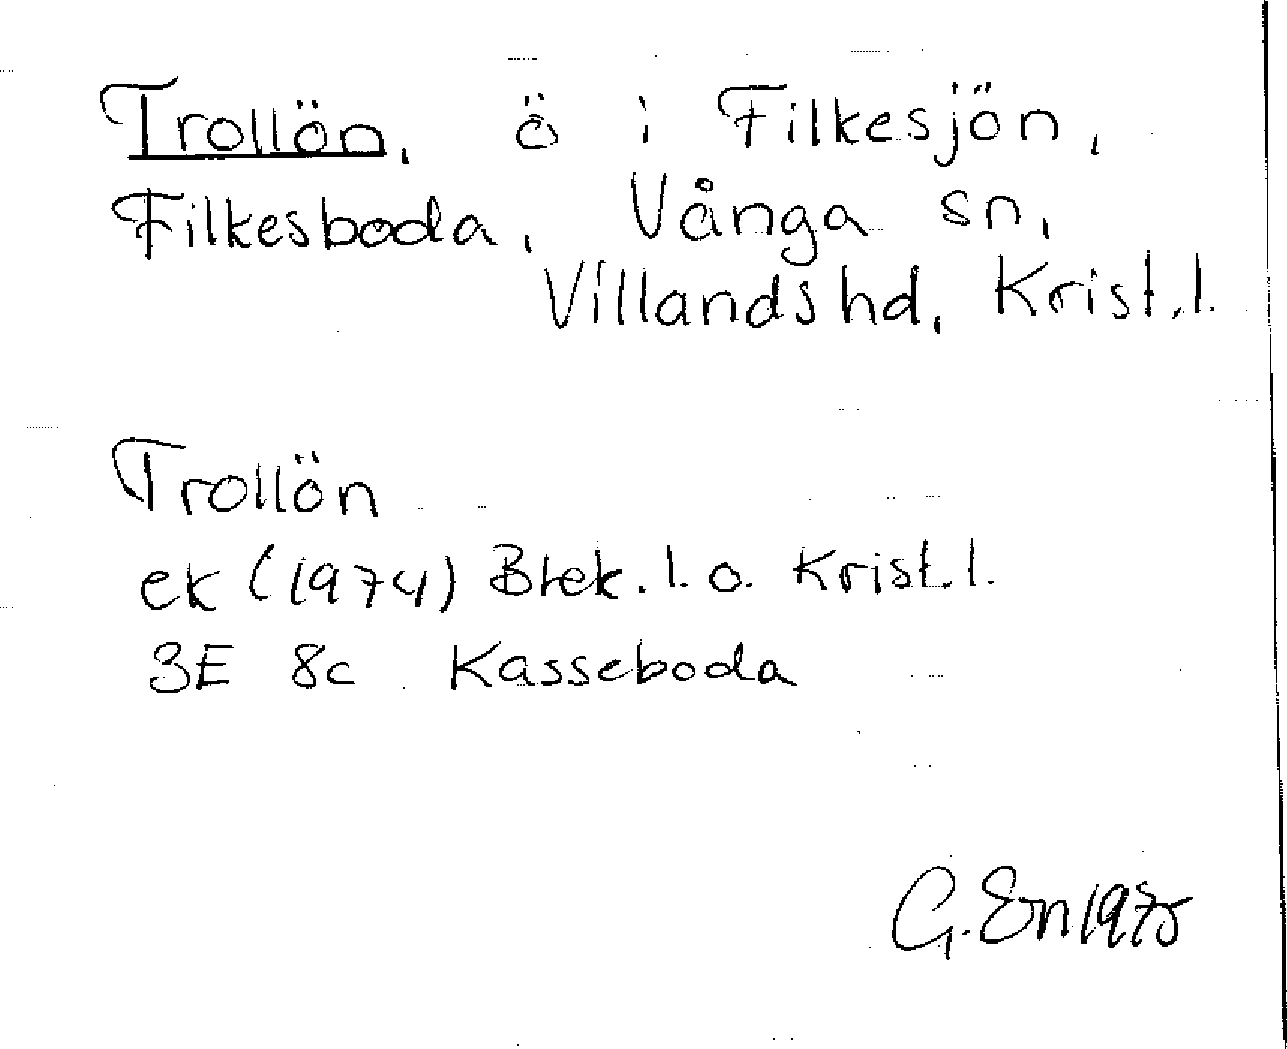 Trollön, ö i Filkesjön,
Filkesboda, Vånga sn,
Villands hd, Krist. l.
Trollön
ek (1974) Blek. l. o. Krist. l.
3E 8c Kasseboda
G. En 1975